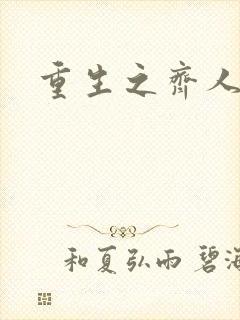 重生之齊人
和夏弘雨 碧海